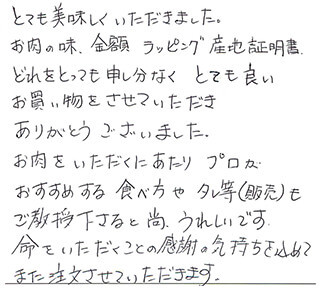 とても美味しくいただきました。
お肉の味、金額 ラッピング 産地証明書、
どれをとっても申し分なく とても良い
お買い物をさせていただき
ありがとう ございました。
お肉をいただくにあたり プロが
おすすめする 食べ方や タレ等(販売)も
ご教授下さると尚、うれしいです。
命をいただくことの感謝の気持ちを込めて
また注文させていただきます。